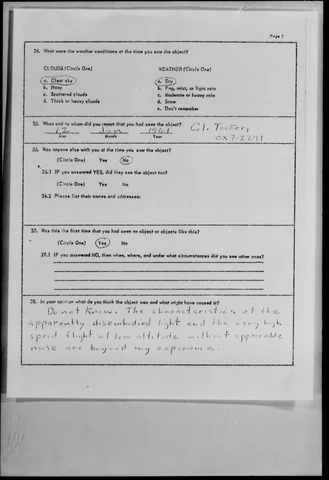 Page 7
34. What were the weather conditions at the time you saw the object?
CLOUDS (Circle One) WEATHER (Circle One)
a. Clear sky a. Dry
b. Hazy b. Fog, mist, or light rain
c. Scattered clouds c. Moderate or heavy rain
d. Thick or heavy clouds d. Snow
e. Don't remember
35. When and to whom did you report that you had seen the object?
12 Jan 1961 Col. Tucker,
Day Month Year OX 7-2291
36. Was anyone else with you at the time you saw the object?
(Circle One) Yes No
36.1 IF you answered YES, did they see the object too?
(Circle One) Yes No
36.2 Please list their names and addresses:
37. Was this the first time that you had seen an object or objects like this?
(Circle One) Yes No
37.1 IF you answered NO, then when, where, and under what circumstances did you see other ones?
38. In your opinion what do you think the object was and what might have caused it?
Do not Know. The characteristics of the
apparently disembodied light and the very high
speed flight at low altitude without appreciable
noise are beyond my experience.